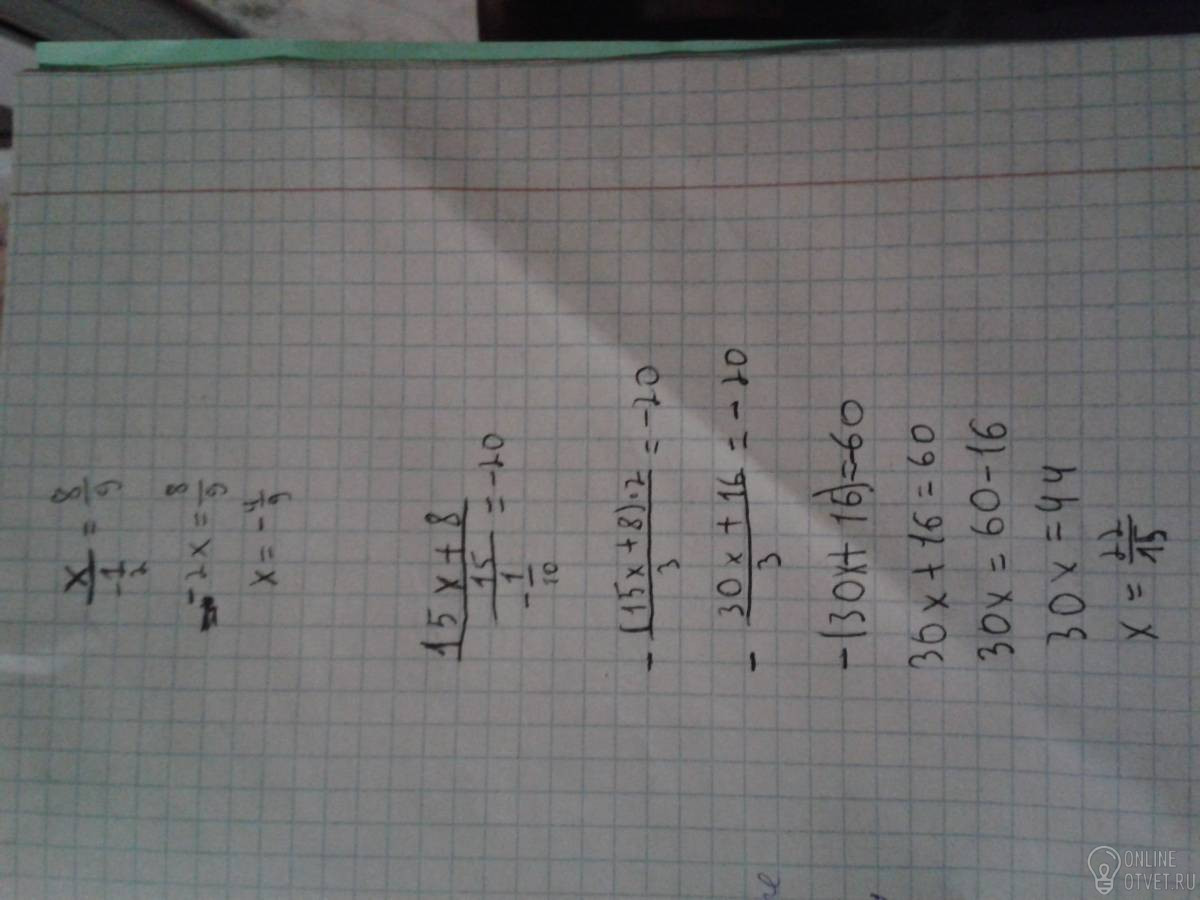 x/(-1/2) = 8/9
-2x = 8/9
x = -4/9
((15x+8)/15)/(-1/10) = -20
-((15x+8)·2)/3 = -20
-(30x+16)/3 = -20
-(30x+16)=-60
30x+16=60
30x=60-16
30x=44
x=22/15
ONLINE
OTVET.RU